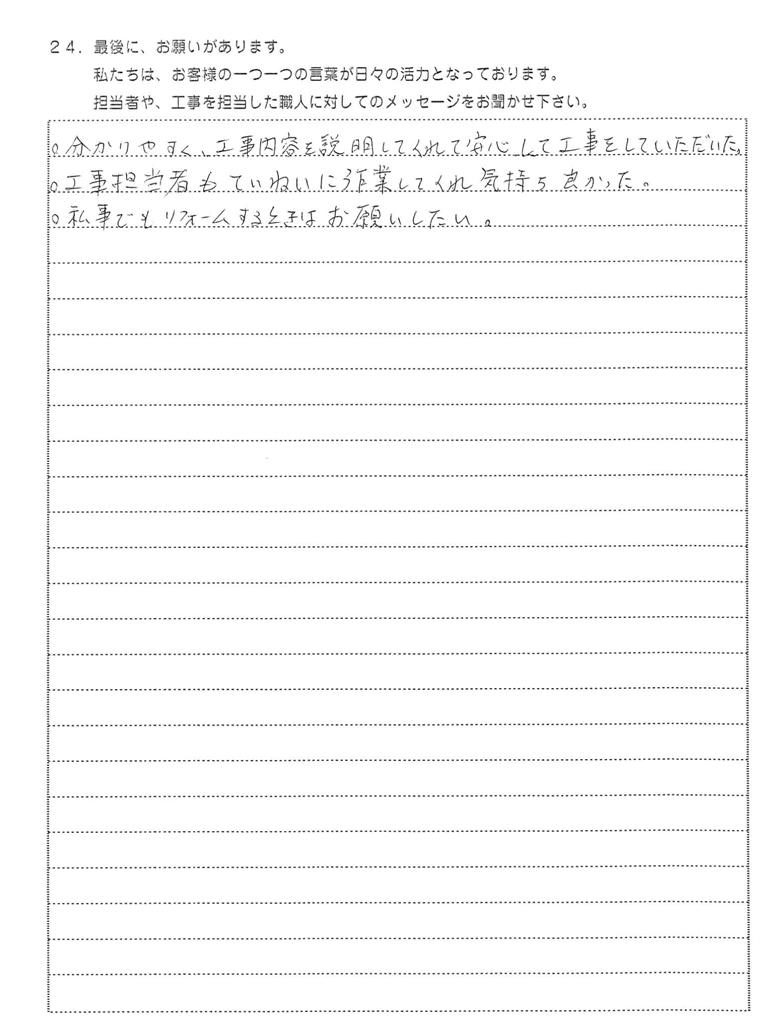 ２４．最後に、お願いがあります。
私たちは、お客様の一つ一つの言葉が日々の活力となっております。
担当者や、工事を担当した職人に対してのメッセージをお聞かせ下さい。
○分かりやすく、工事内容を説明してくれて安心して工事をしていただいた。
○工事担当者もていねいに作業してくれ気持ち良かった。
○私事でもリフォームするときはお願いしたい。